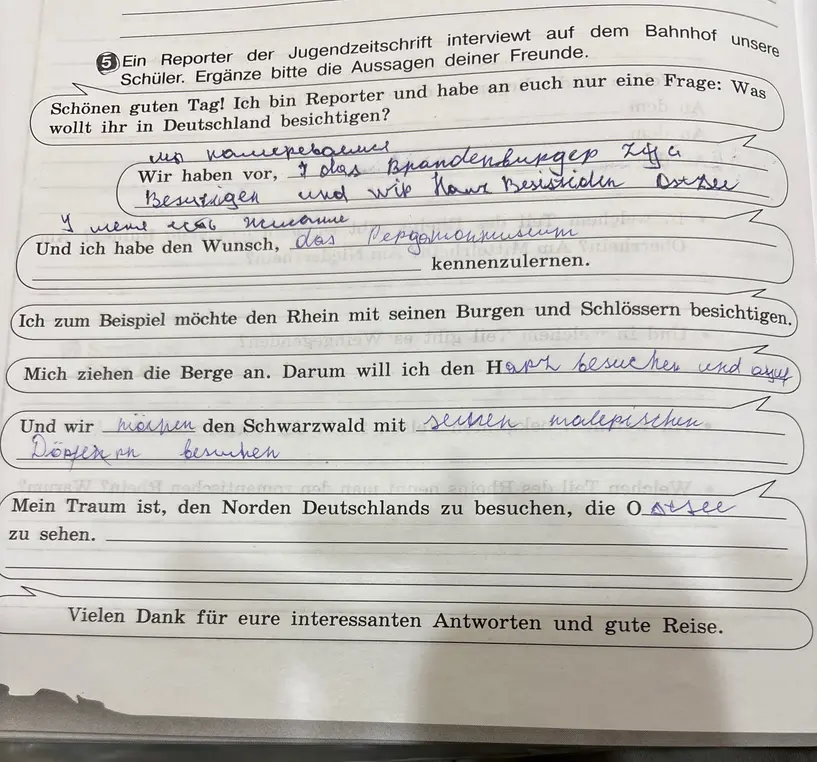 5 Ein Reporter der Jugendzeitschrift interviewt auf dem Bahnhof unsere
Schüler. Ergänze bitte die Aussagen deiner Freunde.
Schönen guten Tag! Ich bin Reporter und habe an euch nur eine Frage: Was
wollt ihr in Deutschland besichtigen?
мы намеревание
Wir haben vor, das Brandenburger
und wir Ostsee
У меня есть желание
Und ich habe den Wunsch, das Pergamonmuseum
kennenzulernen.
Ich zum Beispiel möchte den Rhein mit seinen Burgen und Schlössern besichtigen.
Mich ziehen die Berge an. Darum will ich den Harz besuchen und
Und wir den Schwarzwald mit seinen malerischen
besuchen
Mein Traum ist, den Norden Deutschlands zu besuchen, die Ostsee
zu sehen.
Vielen Dank für eure interessanten Antworten und gute Reise.